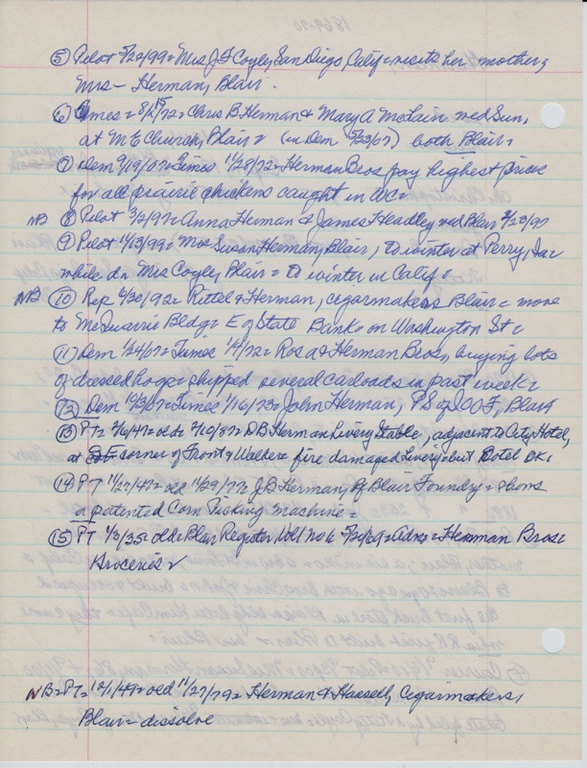 ⑤ Pilot 5/22/99 = Mrs J F Coyle, San Diego, Calif = visits her mother,
Mrs - Herman, Blair.
⑥ Times = 8/15/72 = Chris B. Herman & Mary A McLain wed Sun,
at M E Church, Blair = (in Dem 5/23/07) both Blair =
⑦ Dem 9/19/07 = Times 11/28/72 = Herman Bros pay highest prices
for all prairie chickens caught in WC =
NB ⑧ Pilot 3/2/97 = Anna Herman & James Headley wed Blair 2/23/97
⑨ Pilot 11/13/99 = Mrs Susan Herman, Blair, to winter at Perry, Ia =
while d = Mrs Coyle, Blair = to winter in Calif =
NB ⑩ Rep 6/30/92 = Rittel & Herman, cigarmakers Blair = move
to McQuarrie Bldg = E of State Bank = on Washington St =
⑪ Dem 1/24/07 = Times 1/4/72 = Rosa & Herman Bros, buying lots
of dressed hogs = shipped several carloads in past week =
⑫ Dem 10/3/07 = Times 1/16/73 = John Herman, PS of IOOF, Blair
⑬ PT = 2/6/47 = old = 2/10/87 = D B Herman Livery Stable, adjacent to City Hotel,
at corner of Front & Walker = fire damaged Livery = but Hotel OK.
⑭ PT 11/27/47 = old 11/29/77 J.B. Herman, of Blair Foundry = shows
a patented Corn Picking Machine =
⑮ PT 1/3/35 = old = Blair Register Vol 1 No 6 = Adv = Herman Bros =
Groceries =
NB = PT = 12/1/49 = old 11/27/79 = Herman & Haesell, Cigarmakers,
Blair = dissolve